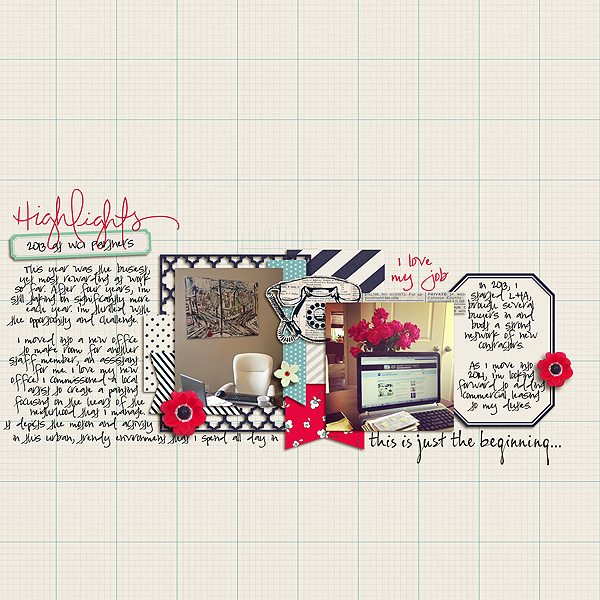 Highlights
2013 at WCI Partners
This year was the busiest,
yet most rewarding at work
so far. After four years, i'm
still taking on significantly more
each year. i'm thrilled with
the opportunity and challenge.
I moved into a new office
to make room for another
staff member, an assistant
for me. I love my new
office! I commissioned a local
artist to create a painting
focusing on the heart of the
neighborhood that I manage.
it depicts the motion and activity
in this urban, trendy environment that I spend all day in
i love
my job
in 2013, I
started L+A,
brought several
buyers in and
built a strong
network of new
contractors.
As I move into
2014, i'm looking
forward to adding
commercial leasing
to my duties.
this is just the beginning...